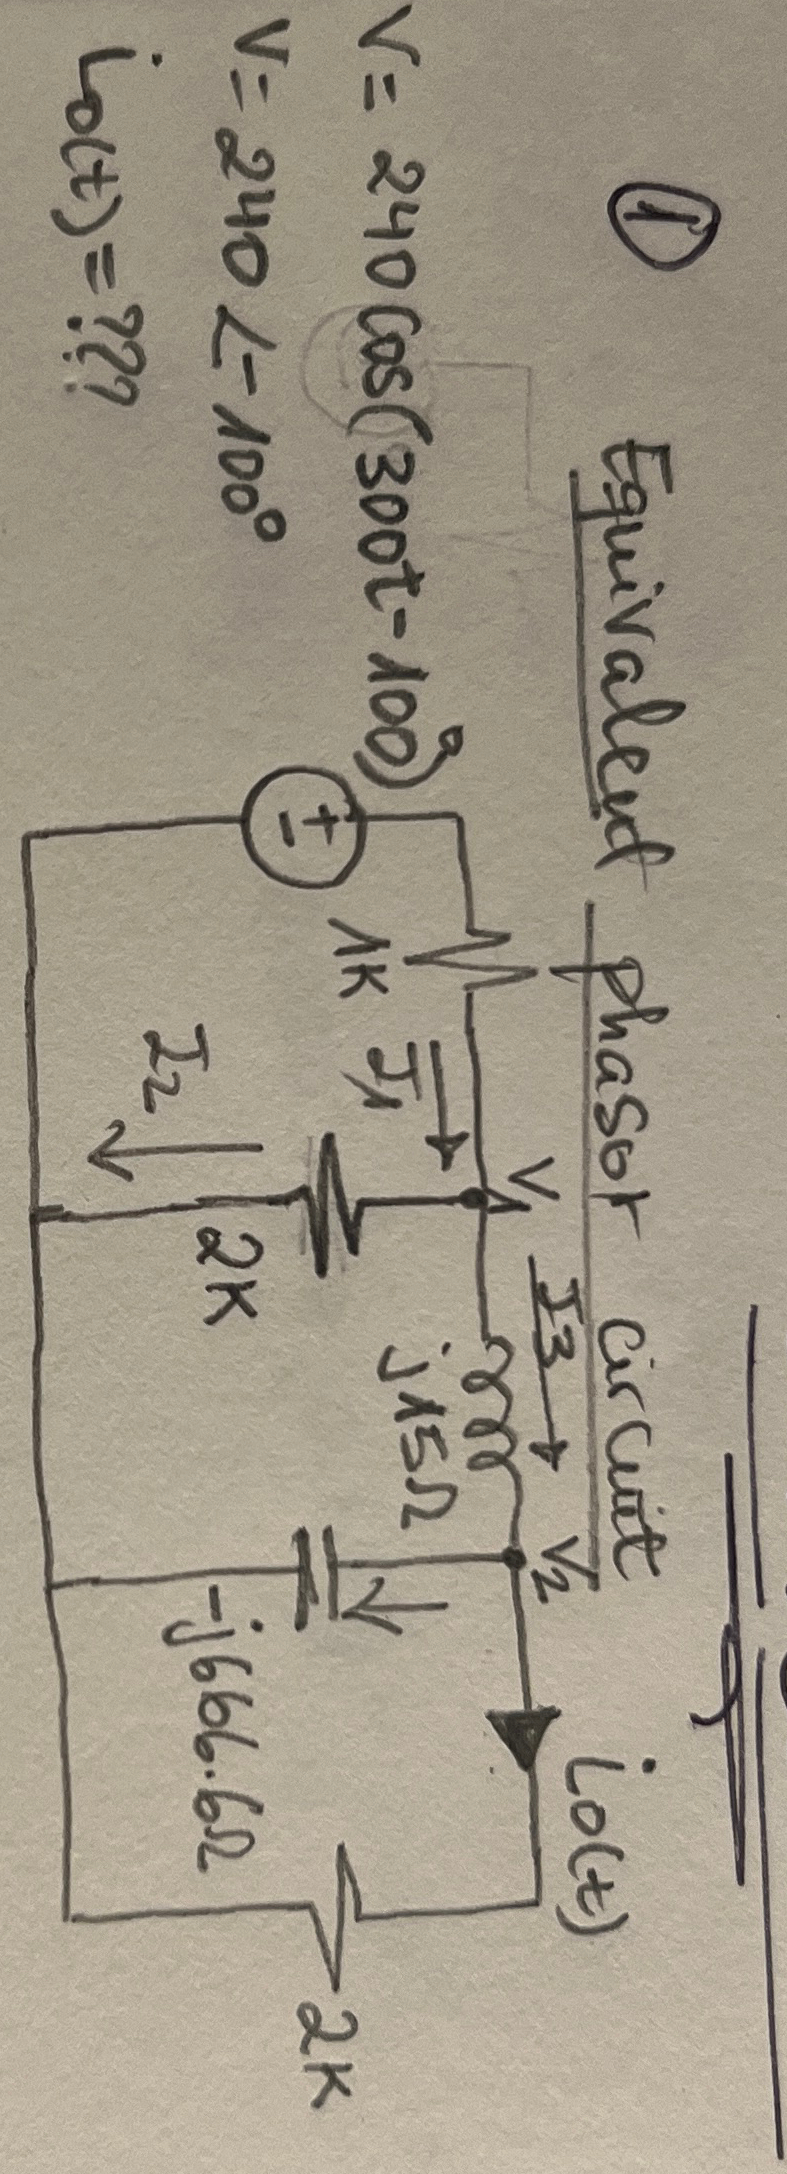 ①
Equivalent phasor circuit
V = 240 cos(300t - 100°)
V = 240 ∠-100°
io(t) = ???
+
-
1K
I1
V1
I2
2K
I3
j15Ω
V2
-j666.6Ω
io(t)
2K